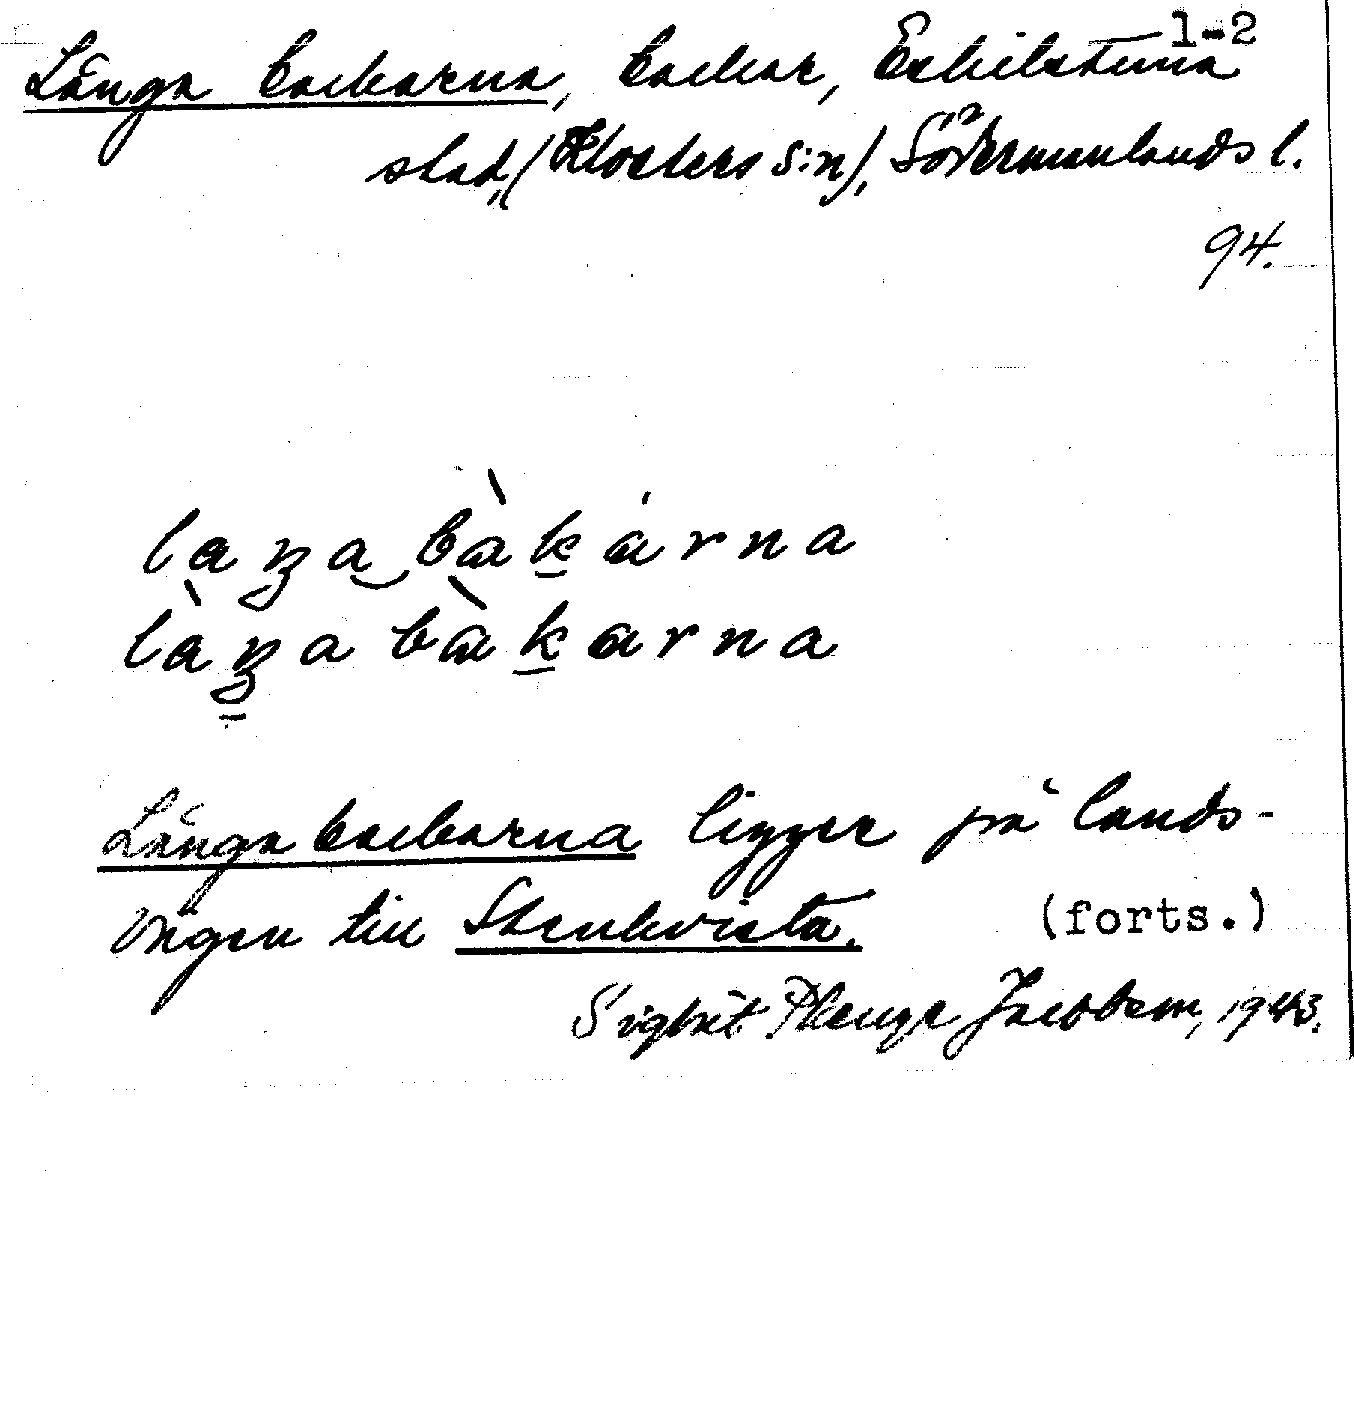 1-2
Långa backarna, backar, Eskilstuna
stad, (Klosters s:n), Södermanlands l.
94.
laŋa bàkárna
làŋa bàkarna
Långa backarna ligger på lands-
vägen till Stenkvista. (forts.)
Sigbrit Plænge Jacobson, 1943.